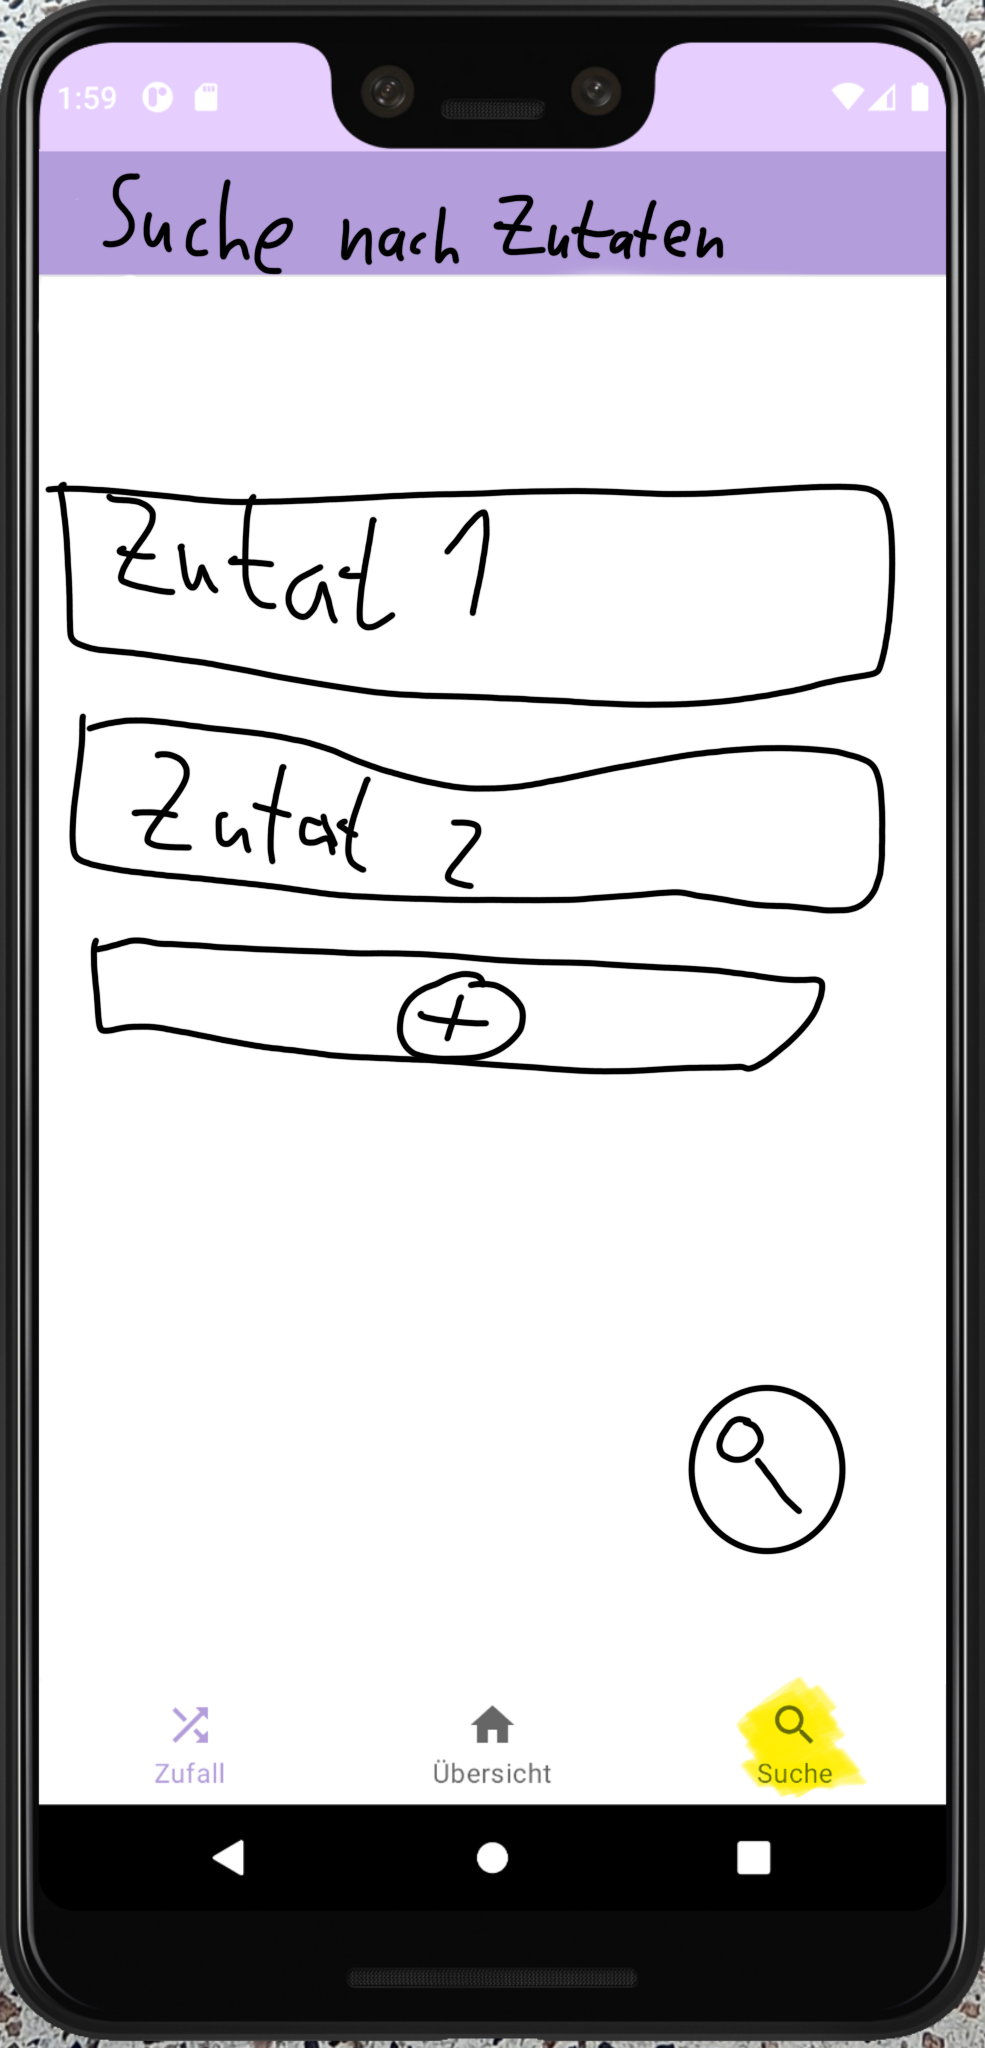 1:59
Suche nach Zutaten
Zutat 1
Zutat 2
+
Zufall Übersicht Suche